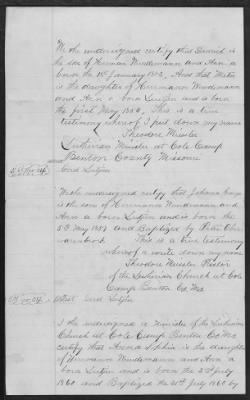 We the undersigned certify that Dierich is
the son of Herman Windemann and Ann a
born the 18th January 1852, And that Meta
is the daughter of Herrmann Windemann
and Ann a born Lutjen and is born
the first May 1854. This is a true
testimony whereof I put down my name
Theodore Miesler
Lutheran Minister at Cole Camp
Benton County Missouri
Lutjen
We the undersigned certify that Johann
is the son of Herrmann Windemann and
Ann a born Lutjen and is born the
1857 and Baptized by Peter
This is a true testimony
whereof I wrote down my name
Theodore Miesler Pastor
of the Lutheran Church at Cole
Camp Benton Co Mo
Lutjen
I the undersigned a Minister of the Lutheran
Church at Cole Camp Benton Co Mo
certify that Anna is the daughter
of Herrmann Windemann and Ann a
born Lutjen and is born the 23d July
1860 and Baptized the 21st July 1860 by